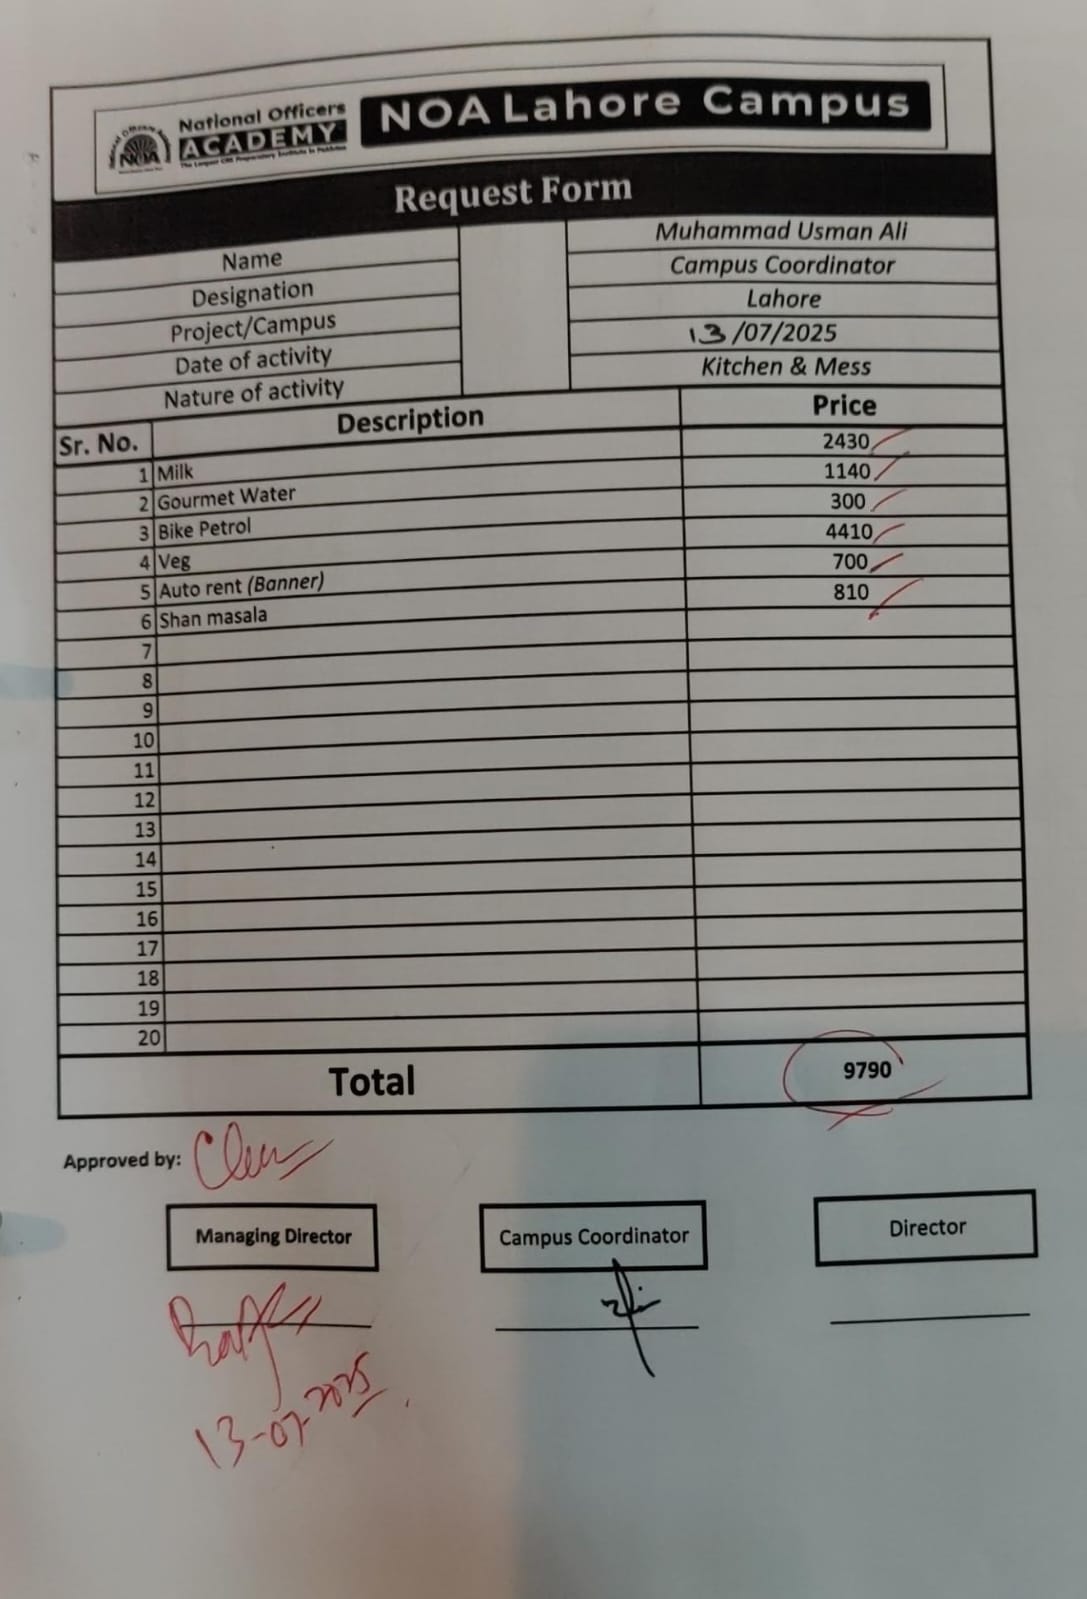 National Officers
ACADEMY
The Largest CSS Preparatory Institute in Pakistan
NOA
NOA Lahore Campus
Request Form
Name Muhammad Usman Ali
Designation Campus Coordinator
Project/Campus Lahore
Date of activity 13/07/2025
Nature of activity Kitchen & Mess
Sr. No. Description Price
1 Milk 2430
2 Gourmet Water 1140
3 Bike Petrol 300
4 Veg 4410
5 Auto rent (Banner) 700
6 Shan masala 810
7
8
9
10
11
12
13
14
15
16
17
18
19
20
Total 9790
Approved by:
Managing Director Campus Coordinator Director
13-07-2025